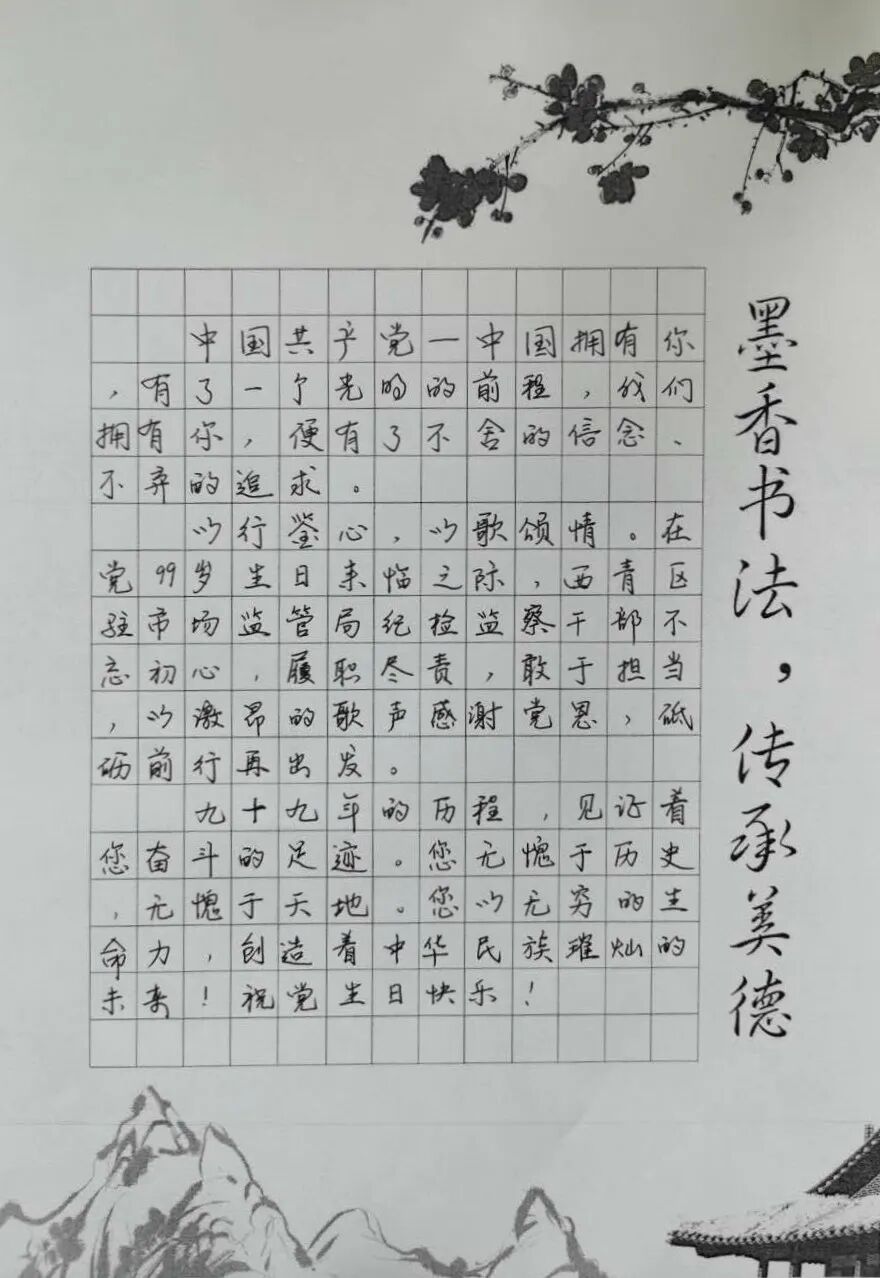 中国共产党一中国拥有你
，有了一个光明的前程，我们
拥有你，便有了不舍的信念、
不弃的追求。
以行鉴心，以歌颂情。在
党99岁生日来临之际，西青区
驻市场监管局纪检监察干部不
忘初心，履职尽责，敢于担当
，以激昂的歌声感谢党恩，砥
砺前行再出发。
九十九年的历程，见证着
您奋斗的足迹。您无愧于历史
，无愧于天地。您以无穷的生
命力，创造着中华民族璀灿的
未来！祝党生日快乐！
墨香书法，传承美德